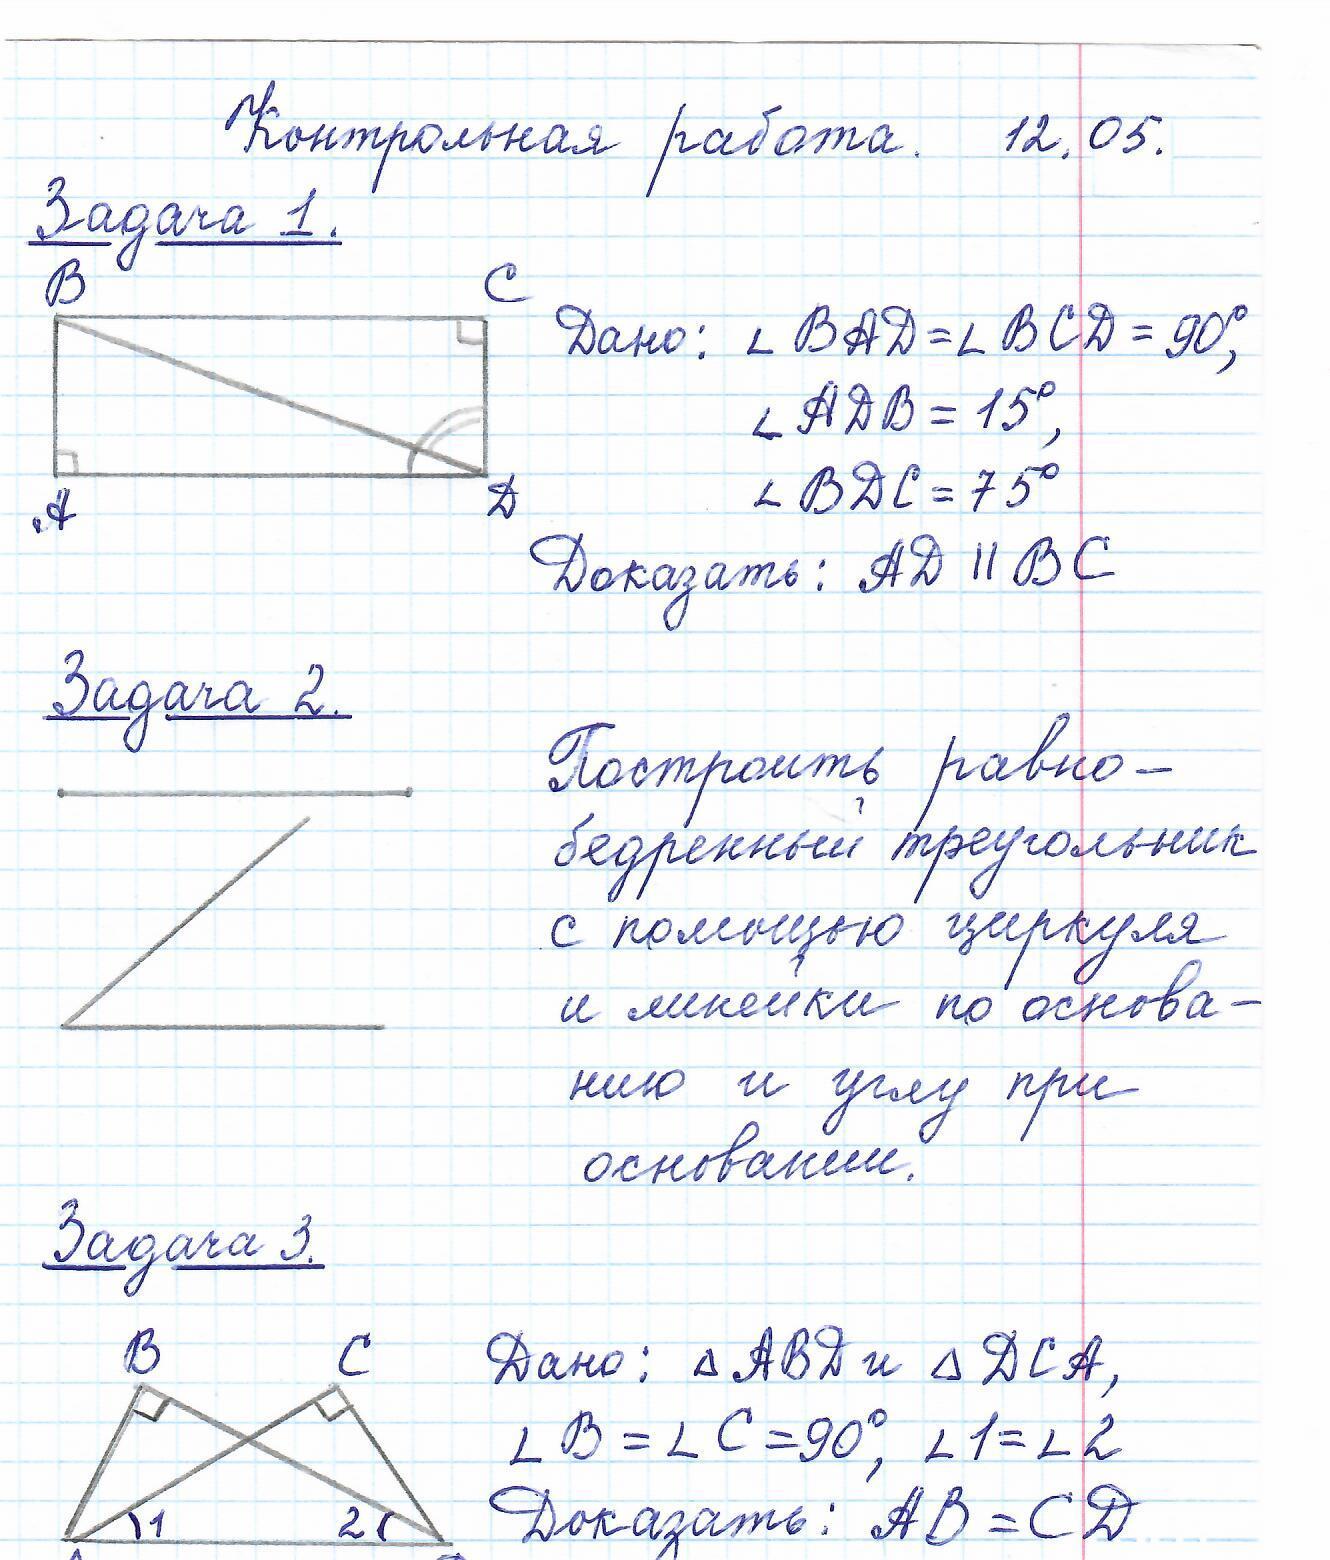 Контрольная работа. 12.05.
Задача 1.
B C
Дано: ∠BAD=∠BCD=90°,
∠ADB=15°,
∠BDC=75°
A D
Доказать: AD || BC
Задача 2.
Построить равно-
бедренный треугольник
с помощью циркуля
и линейки по основа-
нию и углу при
основании.
Задача 3.
B C
Дано: △ABD и △DCA,
∠B=∠C=90°, ∠1=∠2
1 2
Доказать: AB=CD